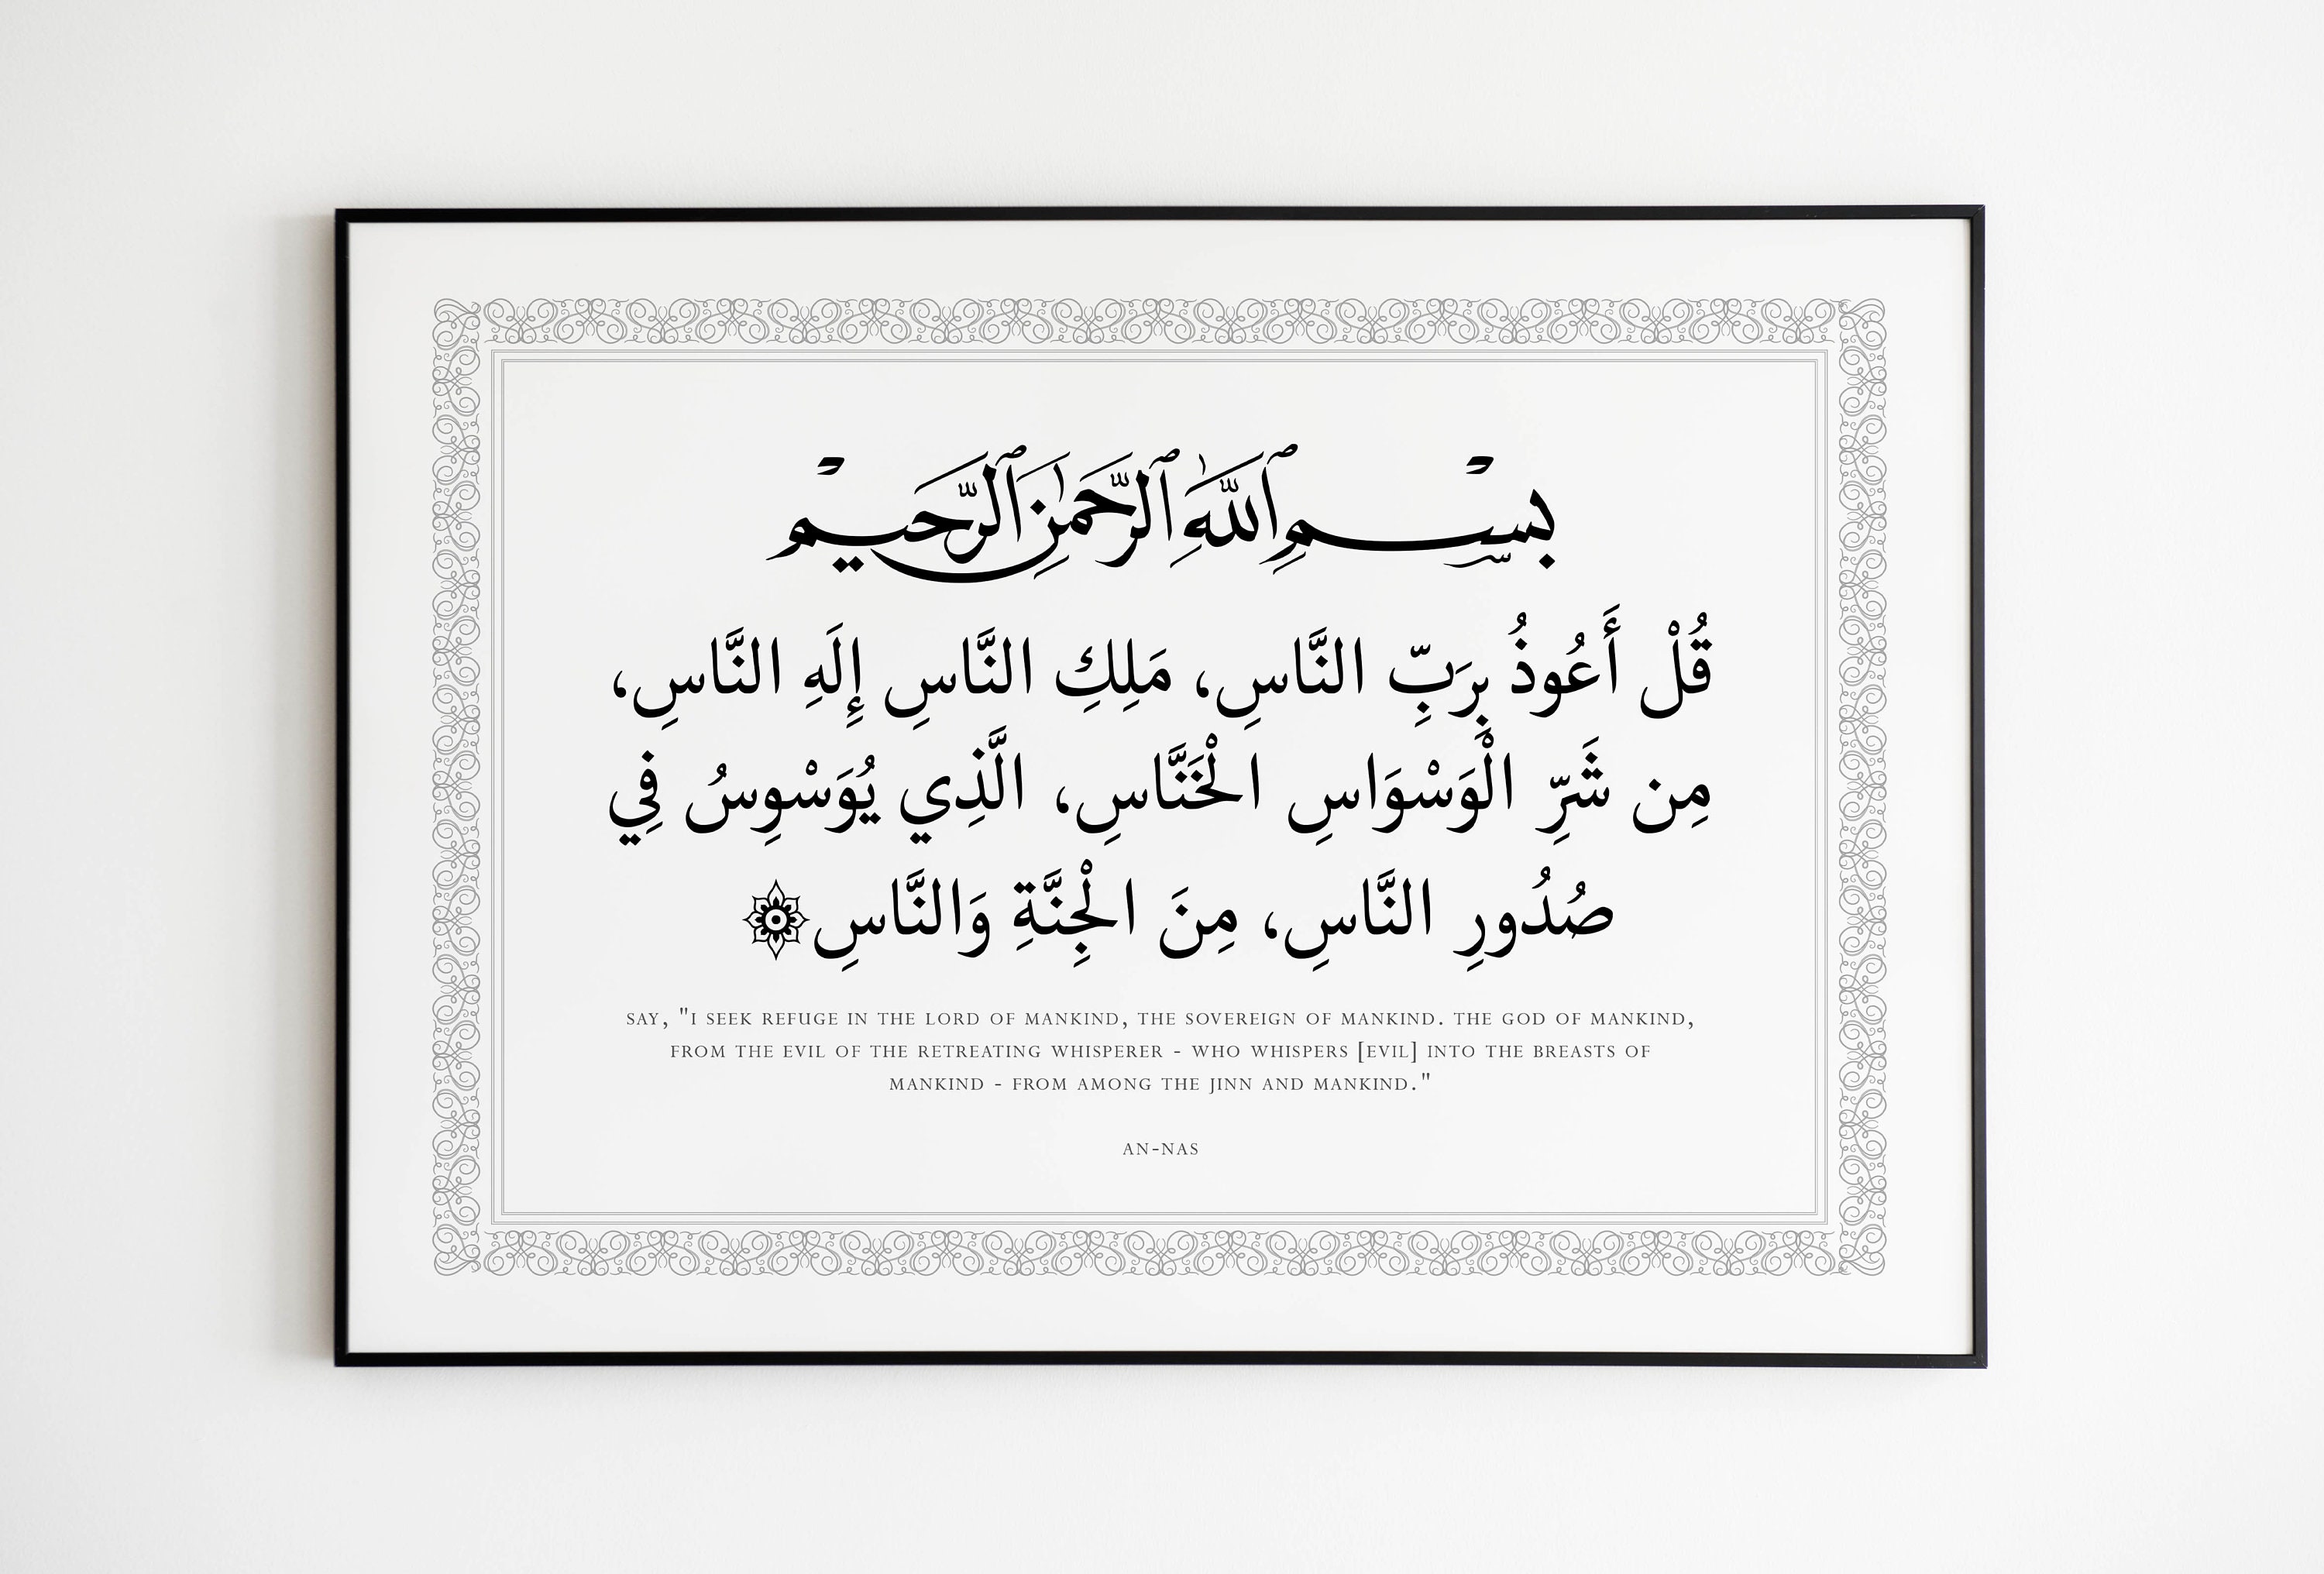 بِسْمِ ٱللَّهِ ٱلرَّحْمَٰنِ ٱلرَّحِيمِ
قُلْ أَعُوذُ بِرَبِّ النَّاسِ، مَلِكِ النَّاسِ إِلَهِ النَّاسِ،
مِن شَرِّ الْوَسْوَاسِ الْخَنَّاسِ، الَّذِي يُوَسْوِسُ فِي
صُدُورِ النَّاسِ، مِنَ الْجِنَّةِ وَالنَّاسِ
SAY, "I SEEK REFUGE IN THE LORD OF MANKIND, THE SOVEREIGN OF MANKIND. THE GOD OF MANKIND,
FROM THE EVIL OF THE RETREATING WHISPERER - WHO WHISPERS [EVIL] INTO THE BREASTS OF
MANKIND - FROM AMONG THE JINN AND MANKIND."
AN-NAS